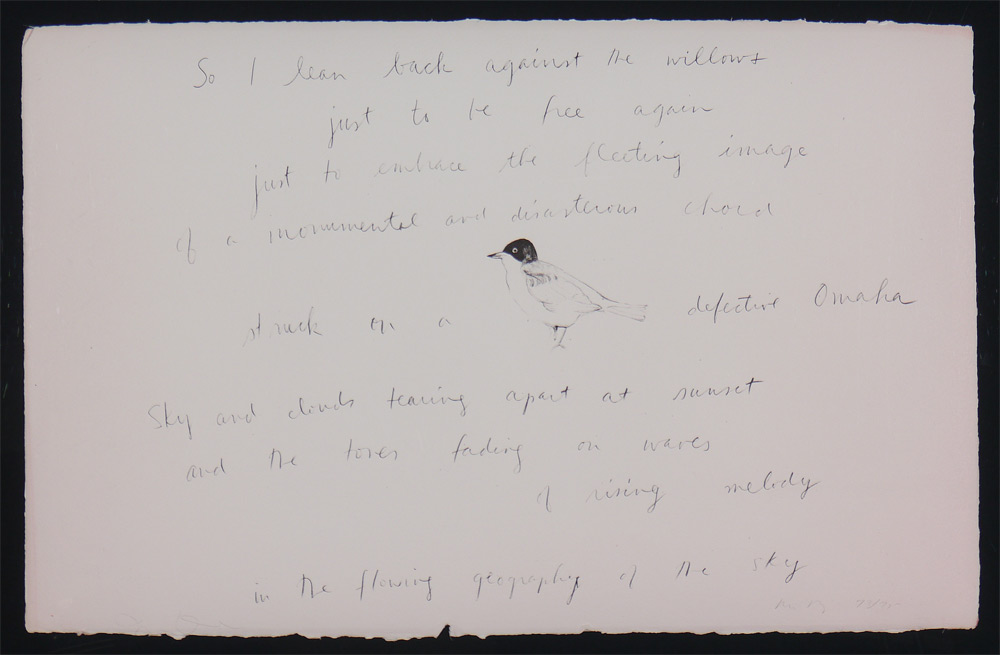 So I lean back against the willows
just to be free again
just to embrace the fleeting image
of a monumental and disasterous chord
struck on a defective Omaha
Sky and clouds tearing apart at sunset
and the tones fading on waves
of rising melody
in the flowing geography of the sky